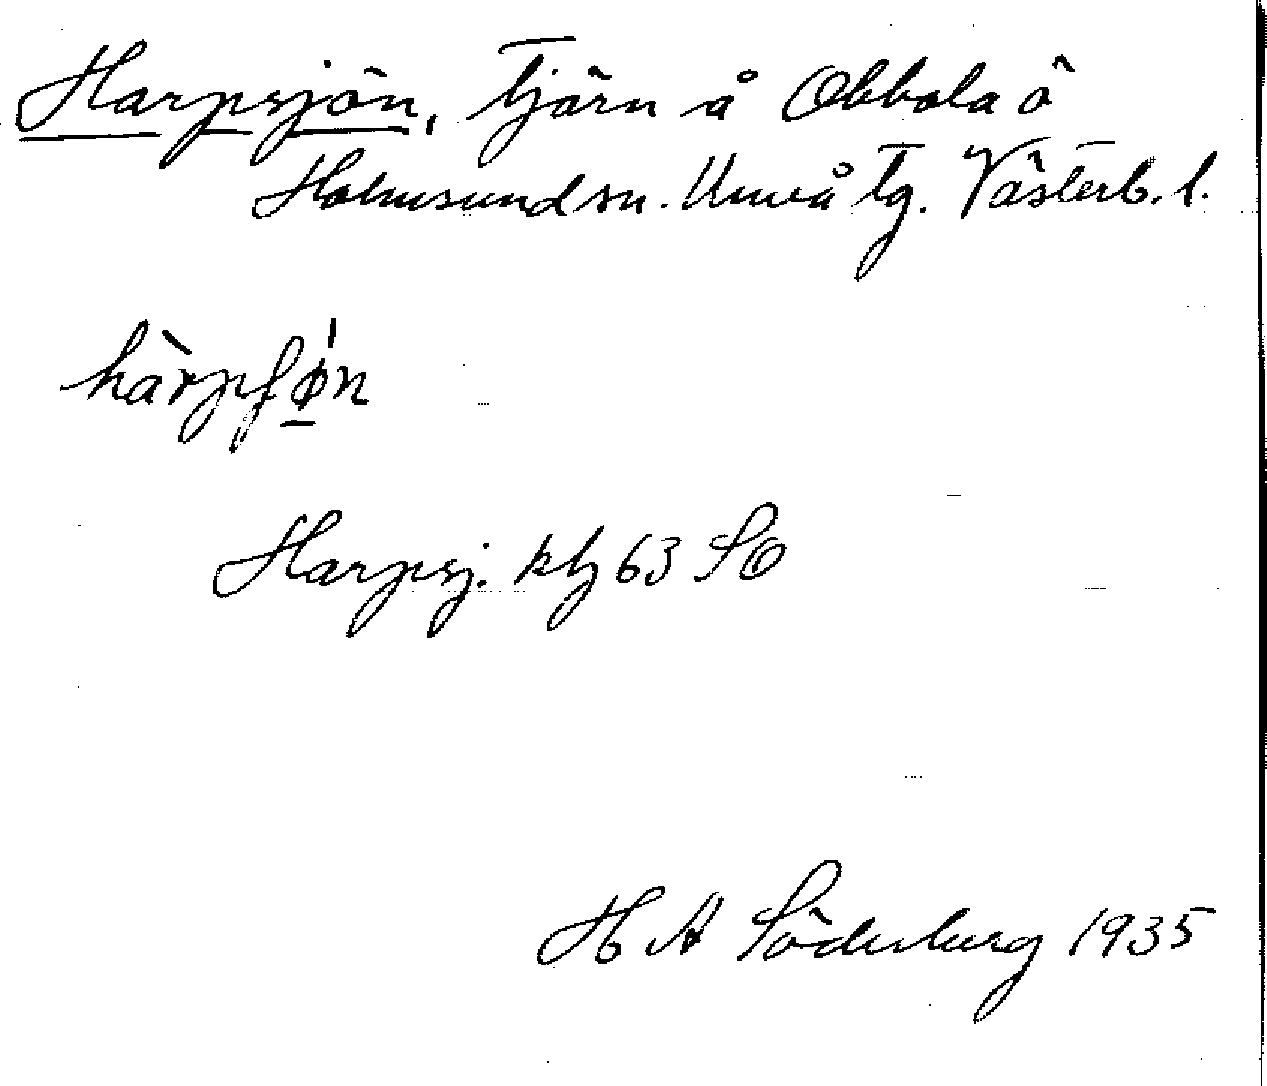 Harpsjön, Tjärn å Obbola ö
Holmsund sn. Umeå tg. Västerb. l.
hàrpʃǿ̱n
Harpsj. kbl 63 SO
H A Söderberg 1935